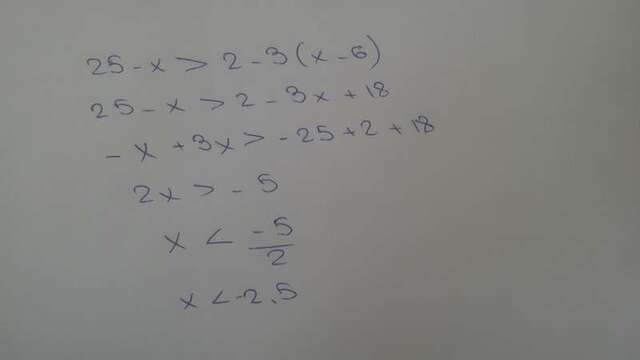 25 - x > 2 - 3 (x - 6)
25 - x > 2 - 3x + 18
- x + 3x > - 25 + 2 + 18
2x > - 5
x < -5/2
x < -2.5